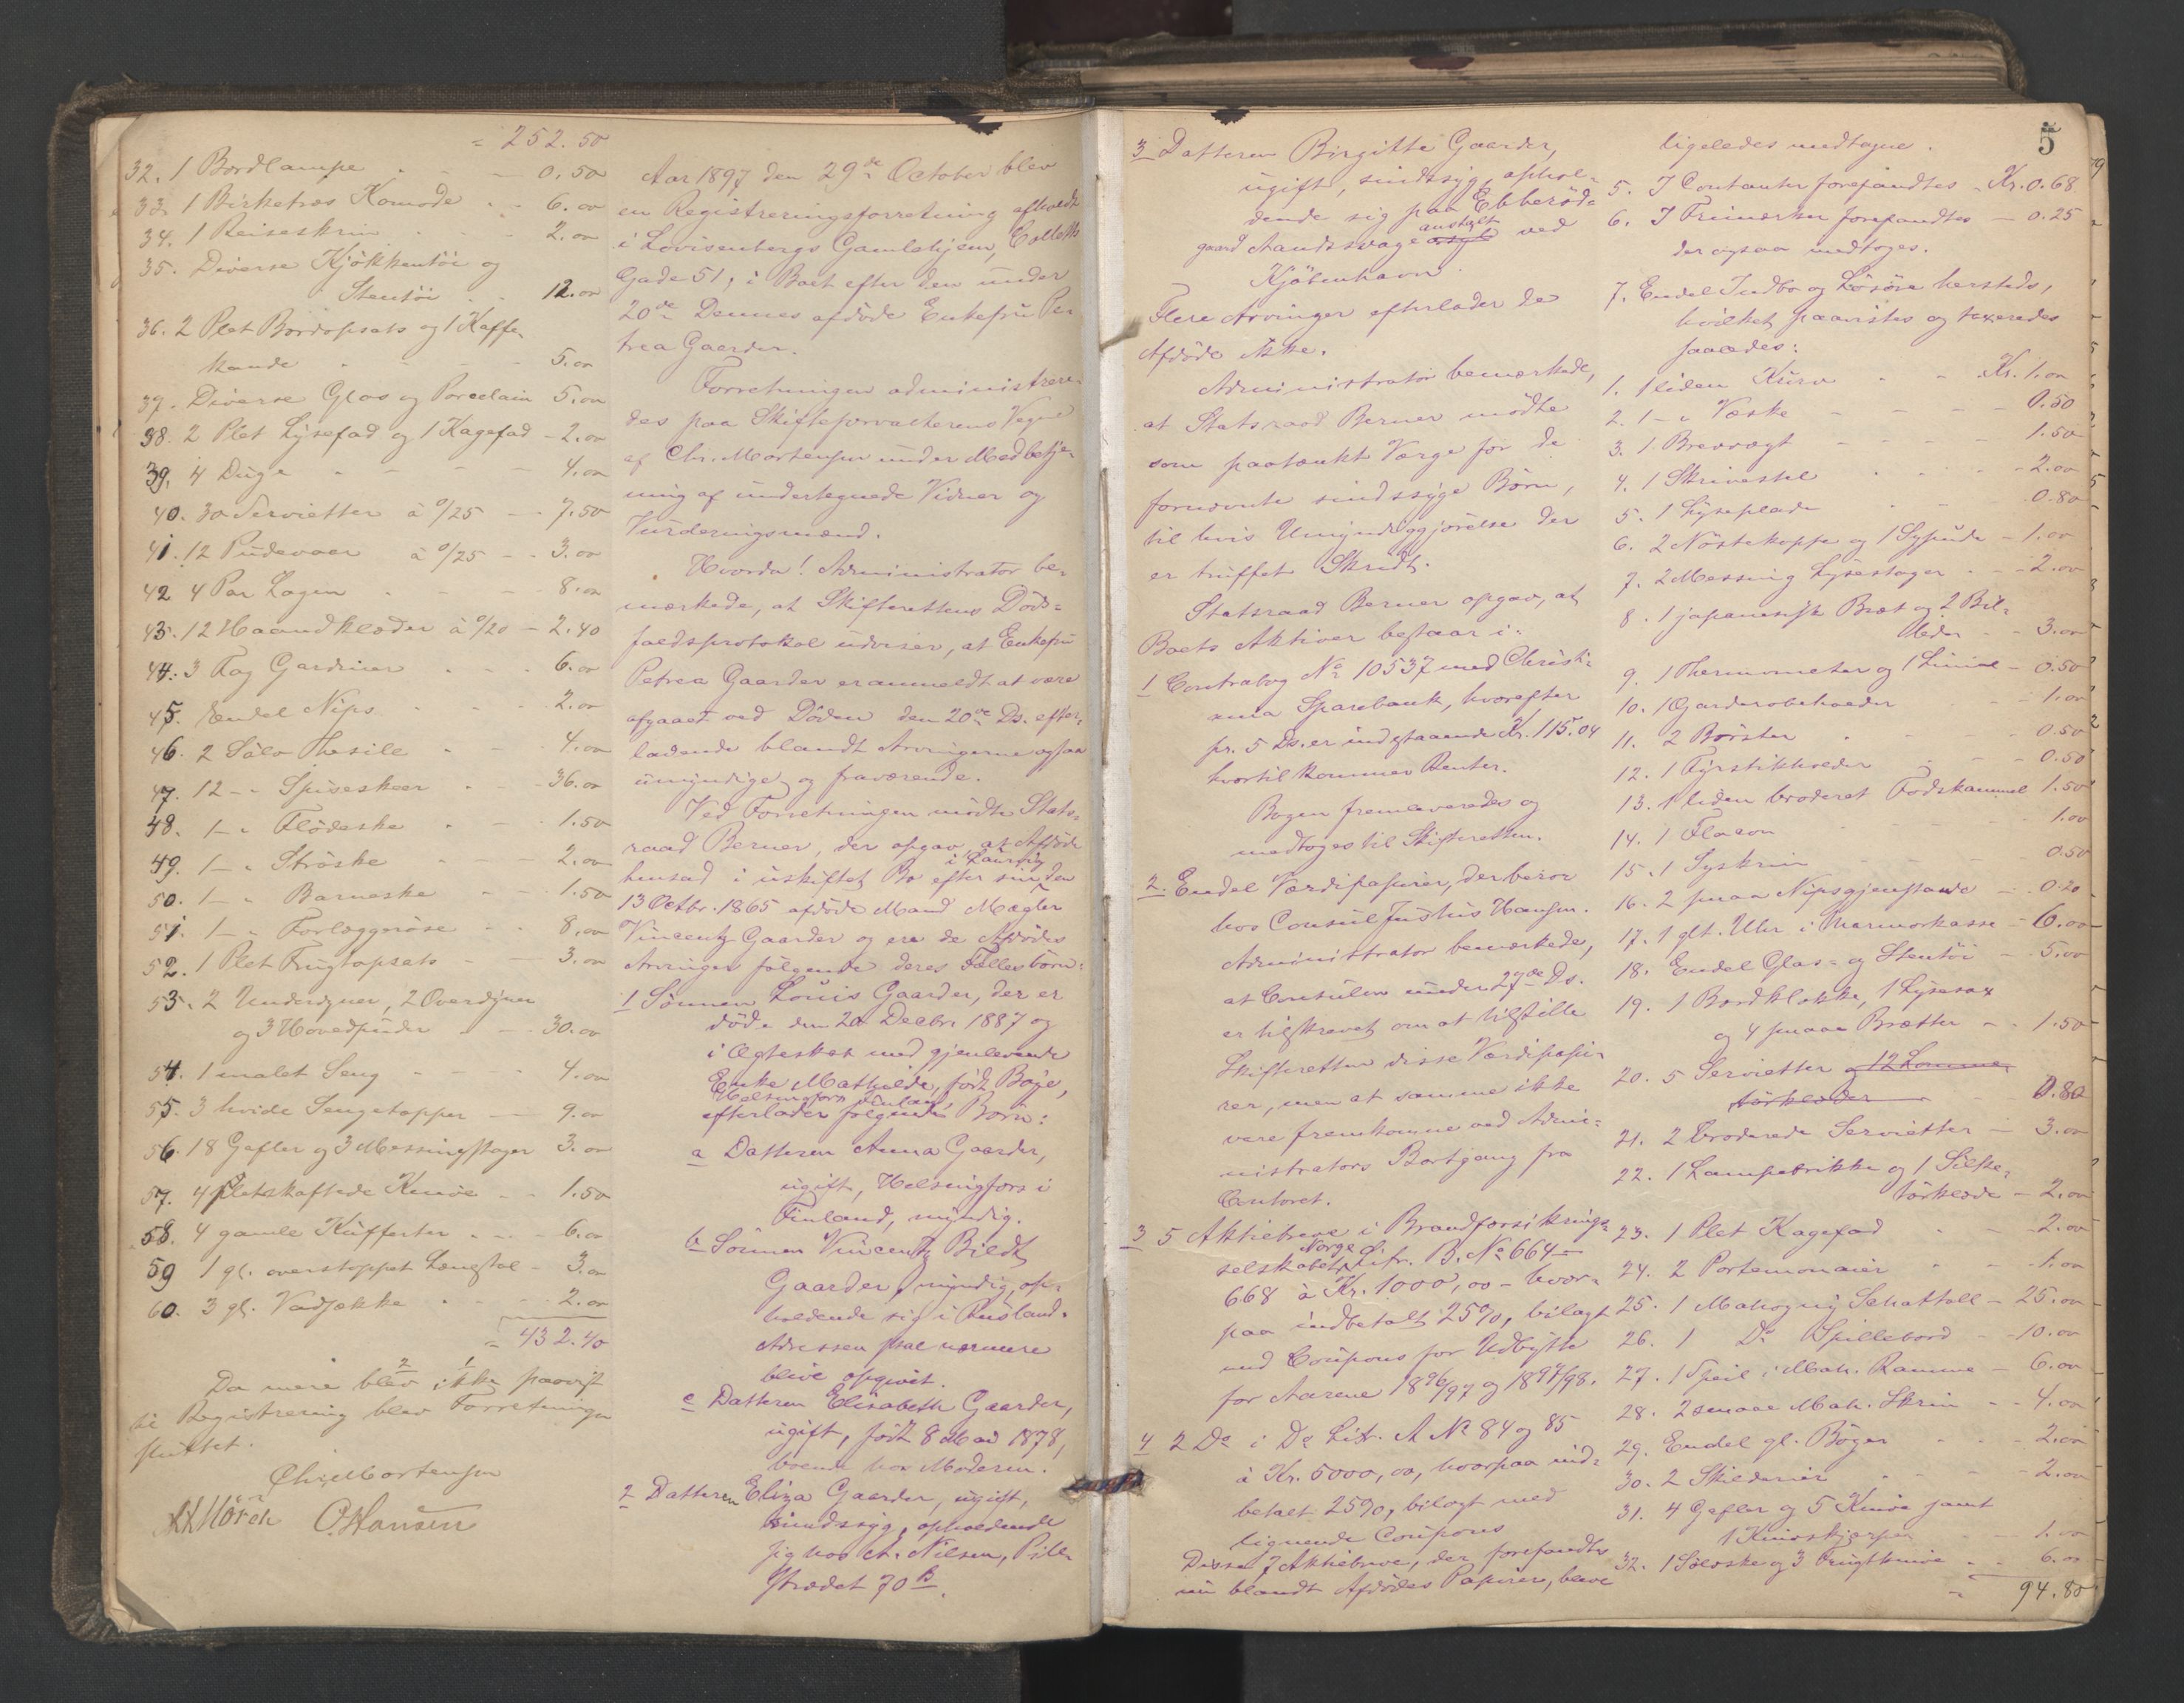 = 252.50
32. 1 Bordlampe - - - 0.50
33. 1 Birketræs Komode - - 6.00
34. 1 Reiseskrin - - - 2.00
35. Diverse Kjøkkentöi og
Stentöi - - 12.00
36. 2 Plet Bordopsats og 1 Kaffe
kande - - - 5.00
37. Diverse Glas og Porcelain 5.00
38. 2 Plet Lysefad og 1 Kagefad - 2.00
39. 4 Duge - - - - 4.00
40. 30 Servietter à 0/25 - - 7.50
41. 12 Pudevaer à 0/25 - - 3.00
42 4 Par Lagen - - - 8.00
43. 12 Haandklæder à 0/20 - 2.40
44. 3 Fag Gardiner - - - 6.00
45. Endel Nips - - - 2.00
46. 2 Sölv Thesile - - - 4.00
47. 12 - " Spiseskeer - - - 36.00
48. 1 - " Flödeske - - - 1.50
49. 1 - " Ströske - - - 2.00
50. 1 - " Barneske - - - 1.50
51. 1 - " Forlæggeröse - - 8.00
52. 1 Plet Frugtopsats - - 3.00
53. 2 Underdyner, 2 Overdyner
og 3 Hovedpuder - - 30.00
54. 1 malet Seng - - - 4.00
55. 3 hvide Sengetæpper - - 9.00
56. 18 Gafler og 3 Messingstager 3.00
57. 4 pletskaftede Knive - - 1.50
58. 4 gamle Kufferter - - - 6.00
59 1 gl. overstoppet Lænestol - 3.00
60. 3 gl. Vadsække - - - 2.00
= 432.40
Da mere blev 2 ikke 1 paavist
til Registrering blev Forretningen
sluttet.
Chr. Mortensen
Mörch O. Hansen
Aar 1897 den 29de October blev
en Registreringsforretning afholdt
i Lovisenbergs Gamlehjem, Colletts
Gade 51, i Boet efter den under
20de Dennes afdöde Enkefru Pe-
trea Gaarder.
Forretningen administrere-
des paa Skifteforvalterens Vegne
af Chr. Mortensen under Medbetje-
ning af undertegnede Vidner og
Vurderingsmænd.
Hvorda! Administrator be-
mærkede, at Skifterettens Döds-
faldsprotokol udviser, at Enkefru
Petrea Gaarder er anmeldt at være
afgaaet ved Döden den 20de Ds. efter-
ladende blandt Arvingerne ogsaa
umyndige og fraværende.
Ved Forretningen mödte Stats-
raad Berner, der opgav, at Afdöde
hensad i uskiftet Bo efter sin i Laurvig den
13 Octbr. 1865 afdöde Mand Mægler
Vincentz Gaarder og ere de Afdödes
Arvinger fölgende deres Fællesbörn:
1 Sönnen Louis Gaarder, der er
döde den 20 Decbr 1887 og
i Ægteskab med gjenlevende
Enke Mathilde, född Boije,
Helsingfors Finland,
efterlader fölgende Börn:
a Datteren Anna Gaarder,
ugift, Helsingfors i
Finland, myndig.
b Sönnen Vincentz Bildt
Gaarder, myndig, op-
holdende sig i Rusland.
Adressen skal nærmere
blive opgivet.
c Datteren Elisabeth Gaarder,
ugift, född 8 Mai 1878,
boende hos Moderen.
2 Datteren Eliza Gaarder, ugift,
sindssyg, opholdende
sig hos A. Nilsen, Pile-
strædet 70 B.
3 Datteren Birgitte Gaarder,
ugift, sindssyg, ophol-
dende sig paa Ebberöd-
gaard Aandssvage asyl anstalt ved
Kjöbenhavn.
Flere Arvinger efterlader de
Afdöde ikke.
Administrator bemærkede,
at Statsraad Berner mödte
som paatænkt Værge for de
fornævnte sindssyge Börn,
til hvis Umyndiggjörelse der
er truffet Skridt.
Statsraad Berner opgav, at
Boets Aktiver bestaar i:
1 Contrabog No 10537 med Christi-
ania Sparebank, hvorefter
pr. 5 Ds. er indestaaende Kr. 115.04
hvortil kommer Renter.
Bogen fremleveredes og
medtoges til Skifteretten.
2. Endel Værdipapirer, der beror
hos Consul Justus Hansen.
Administrator bemærkede,
at Consulen under 27de Ds.
er tilskrevet om at tilstille
Skifteretten disse Værdipapi-
rer, men at samme ikke
vare fremkomne ved Admi-
nistrators Bortgang fra
Contoret.
3 5 Aktiebreve i Brandforsikrings-
selskabet Norge Litr. B. No 664 -
668 à Kr. 1000,00 - hvor-
paa indbetalt 25%, bilagt
med Coupons for Udbytte
for Aarene 1896/97 og 1897/98.
4 2 Do i Do Litr. A No 84 og 85
à Kr. 5000,00, hvorpaa ind-
betalt 25%, bilagt med
lignende Coupons
Disse 7 Aktiebreve, der forefandtes
nu blandt Afdödes Papirer, bleve
5
ligeledes medtagne.
5. I Contanter forefandtes - Kr. 0.68
6. I Frimærker forefandtes - 0.25
der ogsaa medtoges.
7. Endel Indbo og Lösöre hersteds,
hvilket paavistes og taxeredes
saaledes:
1. 1 liden Kurv - - Kr. 1.00
2. 1 - " Væske - - - - 0.50
3. 1 Brevvægt - - - - 1.50
4. 1 Skrivestel - - - 2.00
5. 1 Lyseplade - - 0.80
6. 2 Nöstekopper og 1 Sypude - 1.00
7. 2 Messing Lysestager - - 2.00
8. 1 japanesisk Bræt og 2 Bil-
leder - - 3.00
9. 1 Thermometer og 1 Linial - 0.50
10. 1 Garderobeholder - - 1.00
11. 2 Börster - - - 0.50
12. 1 Fyrstikholder - - - 0.50
13. 1 liden broderet Fodskammel 1.50
14. 1 Flacon - - - 1.00
15. 1 Syskrin - - - 0.50
16. 2 smaa Nipsgjenstande - 0.20
17. 1 glt. Uhr i Marmorkasse - 6.00
18. Endel Glas- og Stentöi - 5.00
19. 1 Bordklokke, 1 Lysesax
og 4 smaa Brætter - - 1.50
20. 5 Servietter og 12 Lomme-
törklæder - - 0.80
21. 2 broderede Servietter - 3.00
22. 1 Lampebrikke og 1 Silke-
törklæde - 2.00
23. 1 Plet Kagefad - - 2.00
24. 2 Portemonaier - - 1.00
25. 1 Mahogny Schattoll - 25.00
26. 1 Do Spillebord - - 10.00
27. 1 Speil i Mah. Ramme - 6.00
28. 2 smaa Mah. Skrin - - 4.00
29. Endel gl. Böger - - - 2.00
30. 2 Skilderier - - - 2.00
31. 4 Gafler og 5 Knive samt
1 Knivskjærper - - 1.00
32. 1 Sölvske og 3 Frugtknive - - 6.00
= 94.80